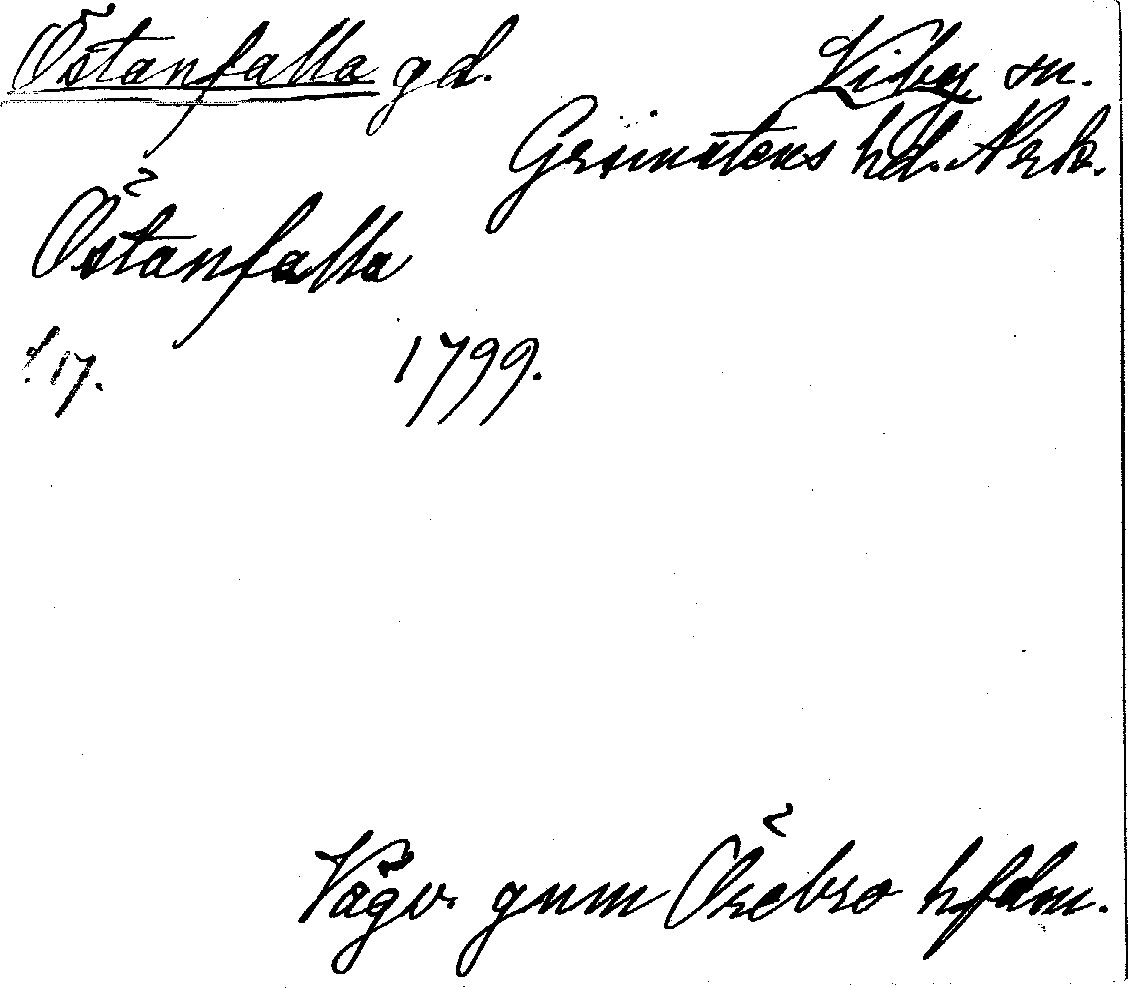 Östanfalla gd. Viby sn.
Grimstens hd. Nrk.
Östanfalla
s. 17. 1799.
Vägv. gnm Örebro hfdm.